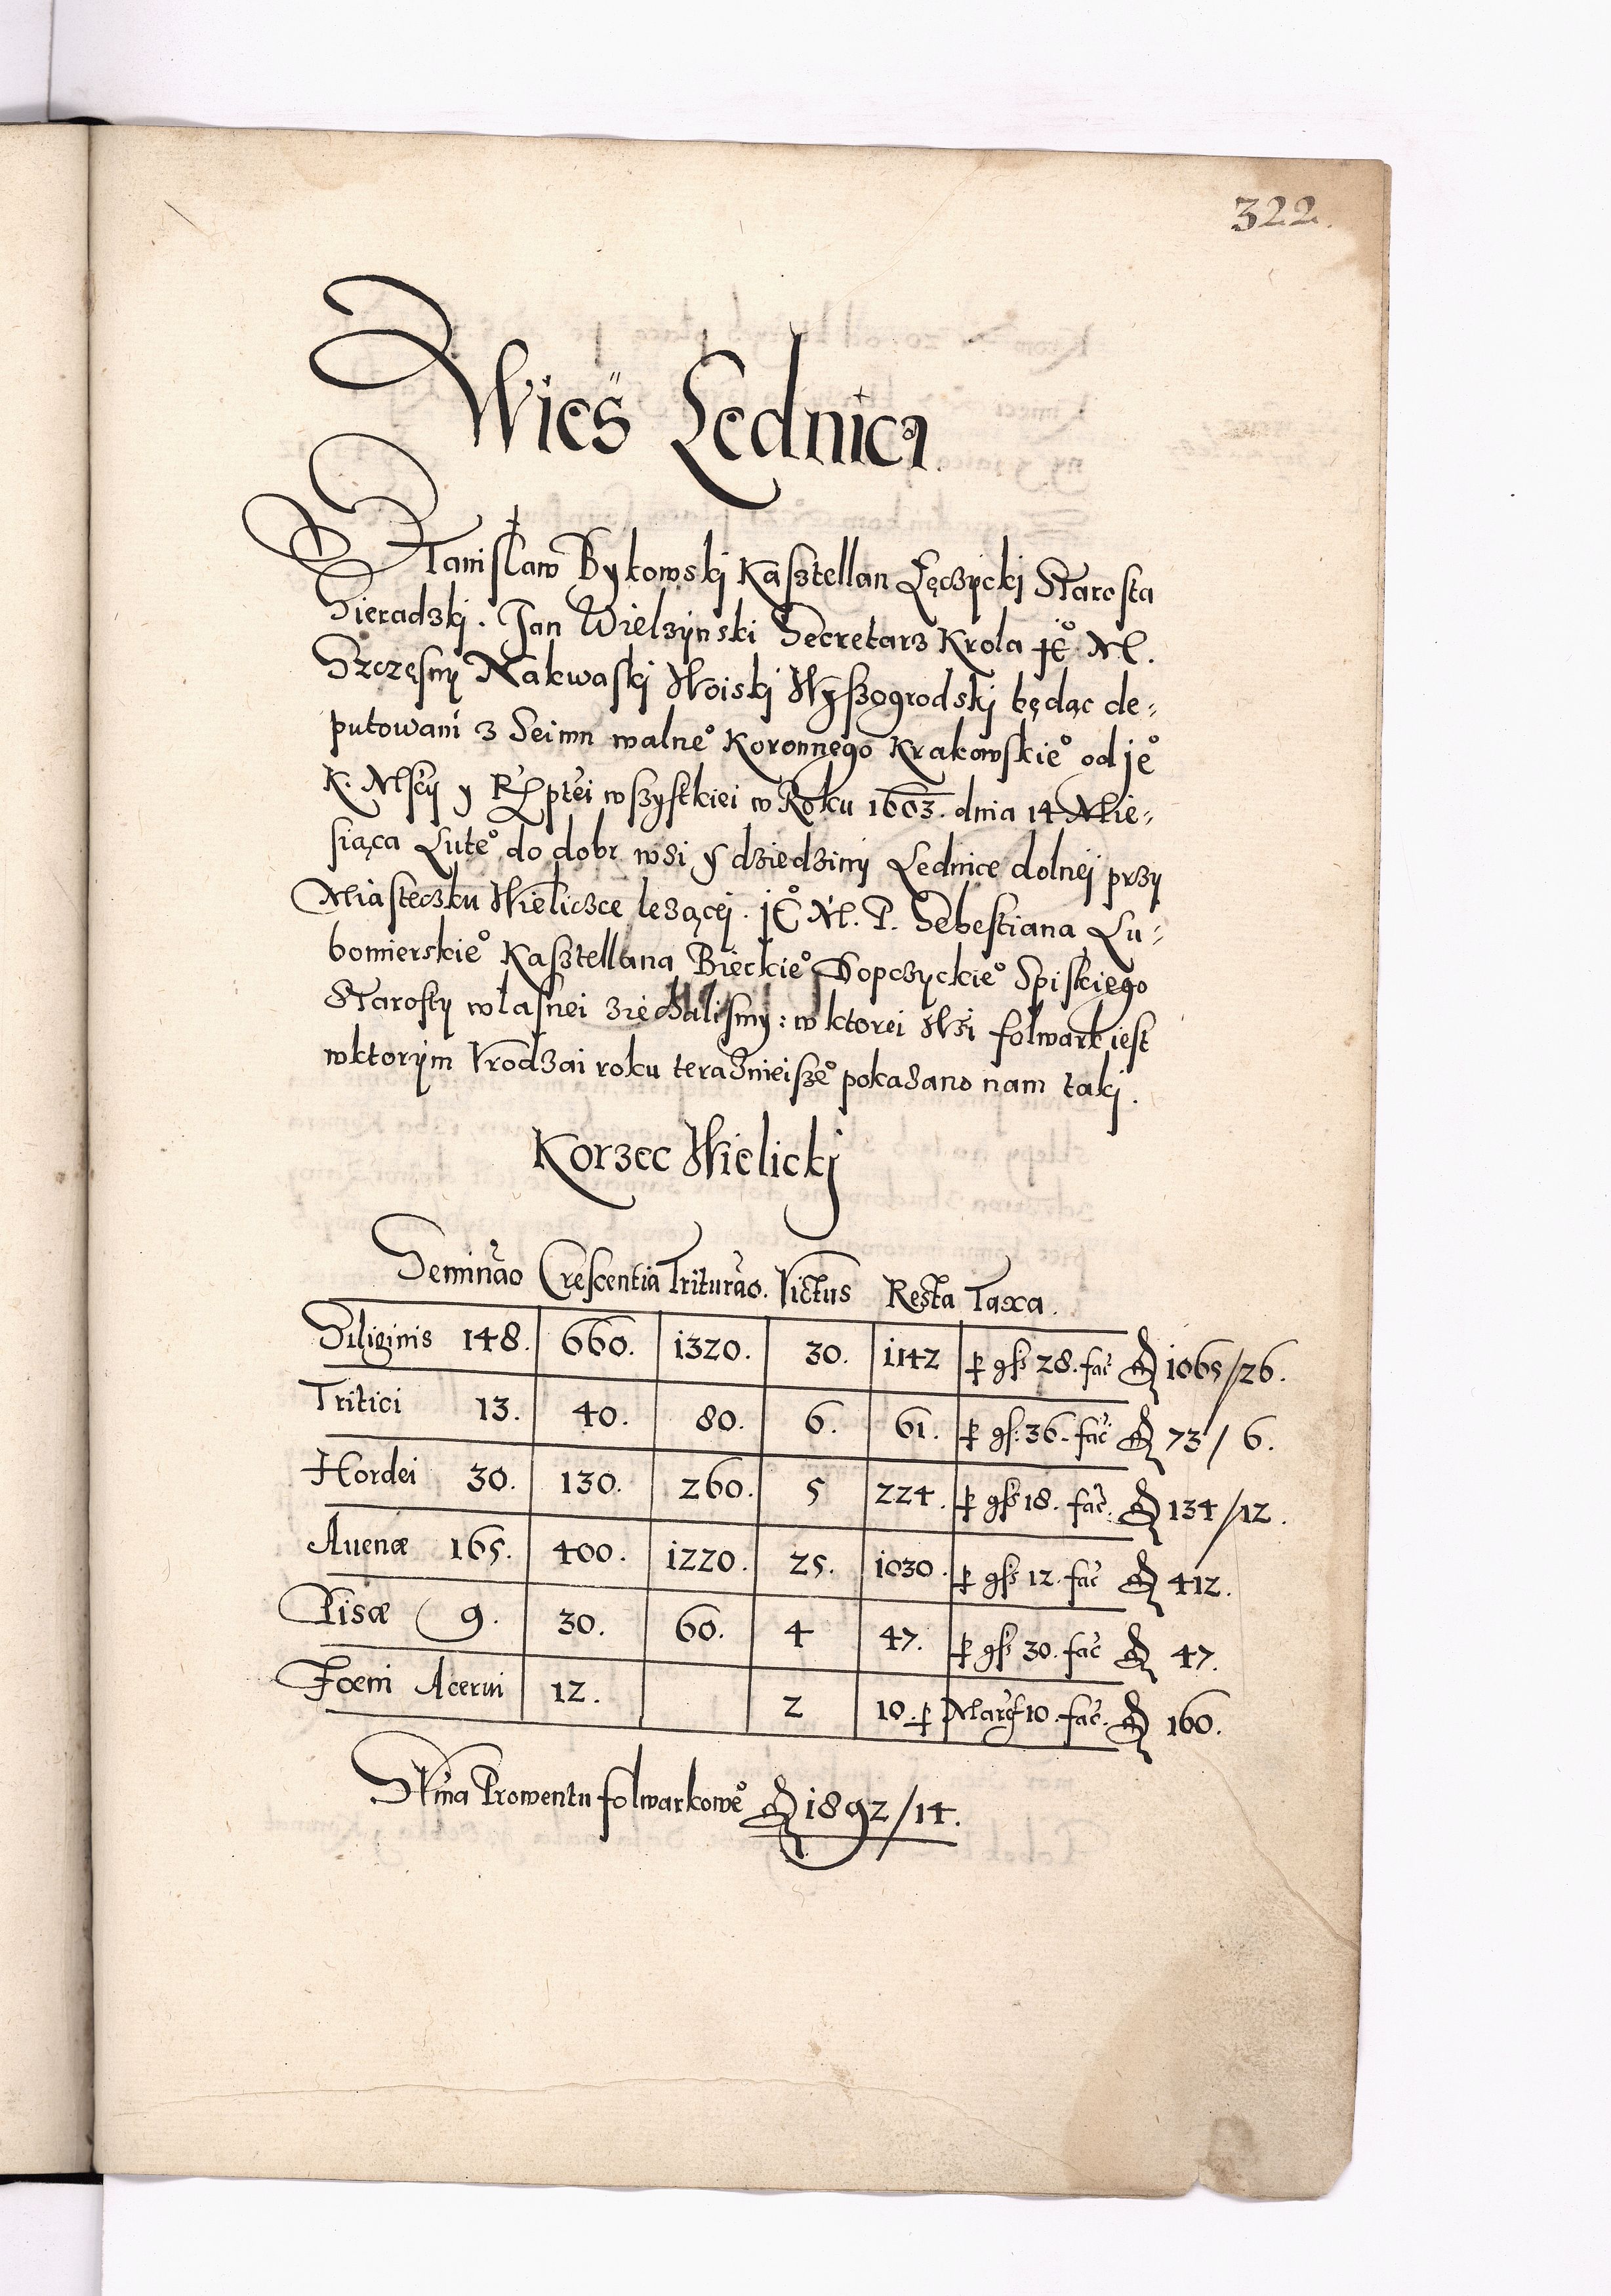 322.
Wieś Lednica
Stanisław Bykowskj Kasztellan Łęczyckj Starosta
Sieradzkj. Jan Wielzynski Secretarz Krola Jeº M.
Szczęsny Nakwaskj Woiskj Wyszogrodskj będąc de-
putowani z Seimu walneº Koronnego Krakowskieº od jeº
K. Mści y Rzptei wszystkiei w Roku 1603. dnia 14 Mie-
siąca Luteº do dobr wsi y dziedziny Lednice dolnei przy
Miasteczku Wieliczce leżącej. jeº M. P. Sebestiana Lu-
bomierskieº Kasztellana Bieckieº Dopczyckieº Spiskiego
Starosty własnei ziechalismy: w ktorei Wsi folwark iest
wktorym Vrodzai roku teraznieiszeº pokazano nam takj.
Korzec Wielickj
Seminão Crescentia Triturão. Victus Resta Taxa.
Siliginis 148. 660. 1320. 30. 1142 p gſ 28. fac̃ fl 1065/26.
Tritici 13. 40. 80. 6. 61. p gſ: 36. fac̃ fl 73/6.
Hordei 30. 130. 260. 5 224. p gſ 18. fac̃. fl 134/12.
Auenæ 165. 400. 1220. 25. 1030. p gſ 12. fac̃ fl 412.
Pisæ 9. 30. 60. 4 47. p gſ 30. fac̃ fl 47.
Fœni Acerui 12. 2 10. p Marc̃ 10. fac̃. fl 160.
Sum̃a Prowentu folwarkoweº fl 1892/14.